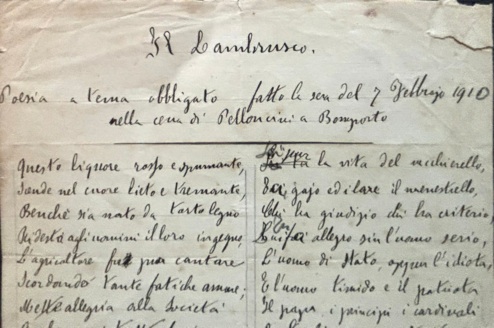 Il Lambrusco.
Poesia a tema obbligato fatto la sera del 7 Febbrajo 1910
nella cena di Pelloncini a Bomporto
Questo liquore rosso e spumante,
Scende nel cuore lieto e tremante,
Benchè sia nato da torto legno
Ridesta agli uomini il loro ingegno,
L'agricoltore fa poi cantare
Scordando tante fatiche amare;
Mette allegria alla Società
la vita del vecchierello,
Fa gajo ed ilare il menestrello,
Chi ha giudizio chi ha criterio,
allegro sin l'uomo serio,
L'uomo di Stato, oppur l'idiota,
E l'uomo timido e il patriota
Il papa, i principi i cardinali